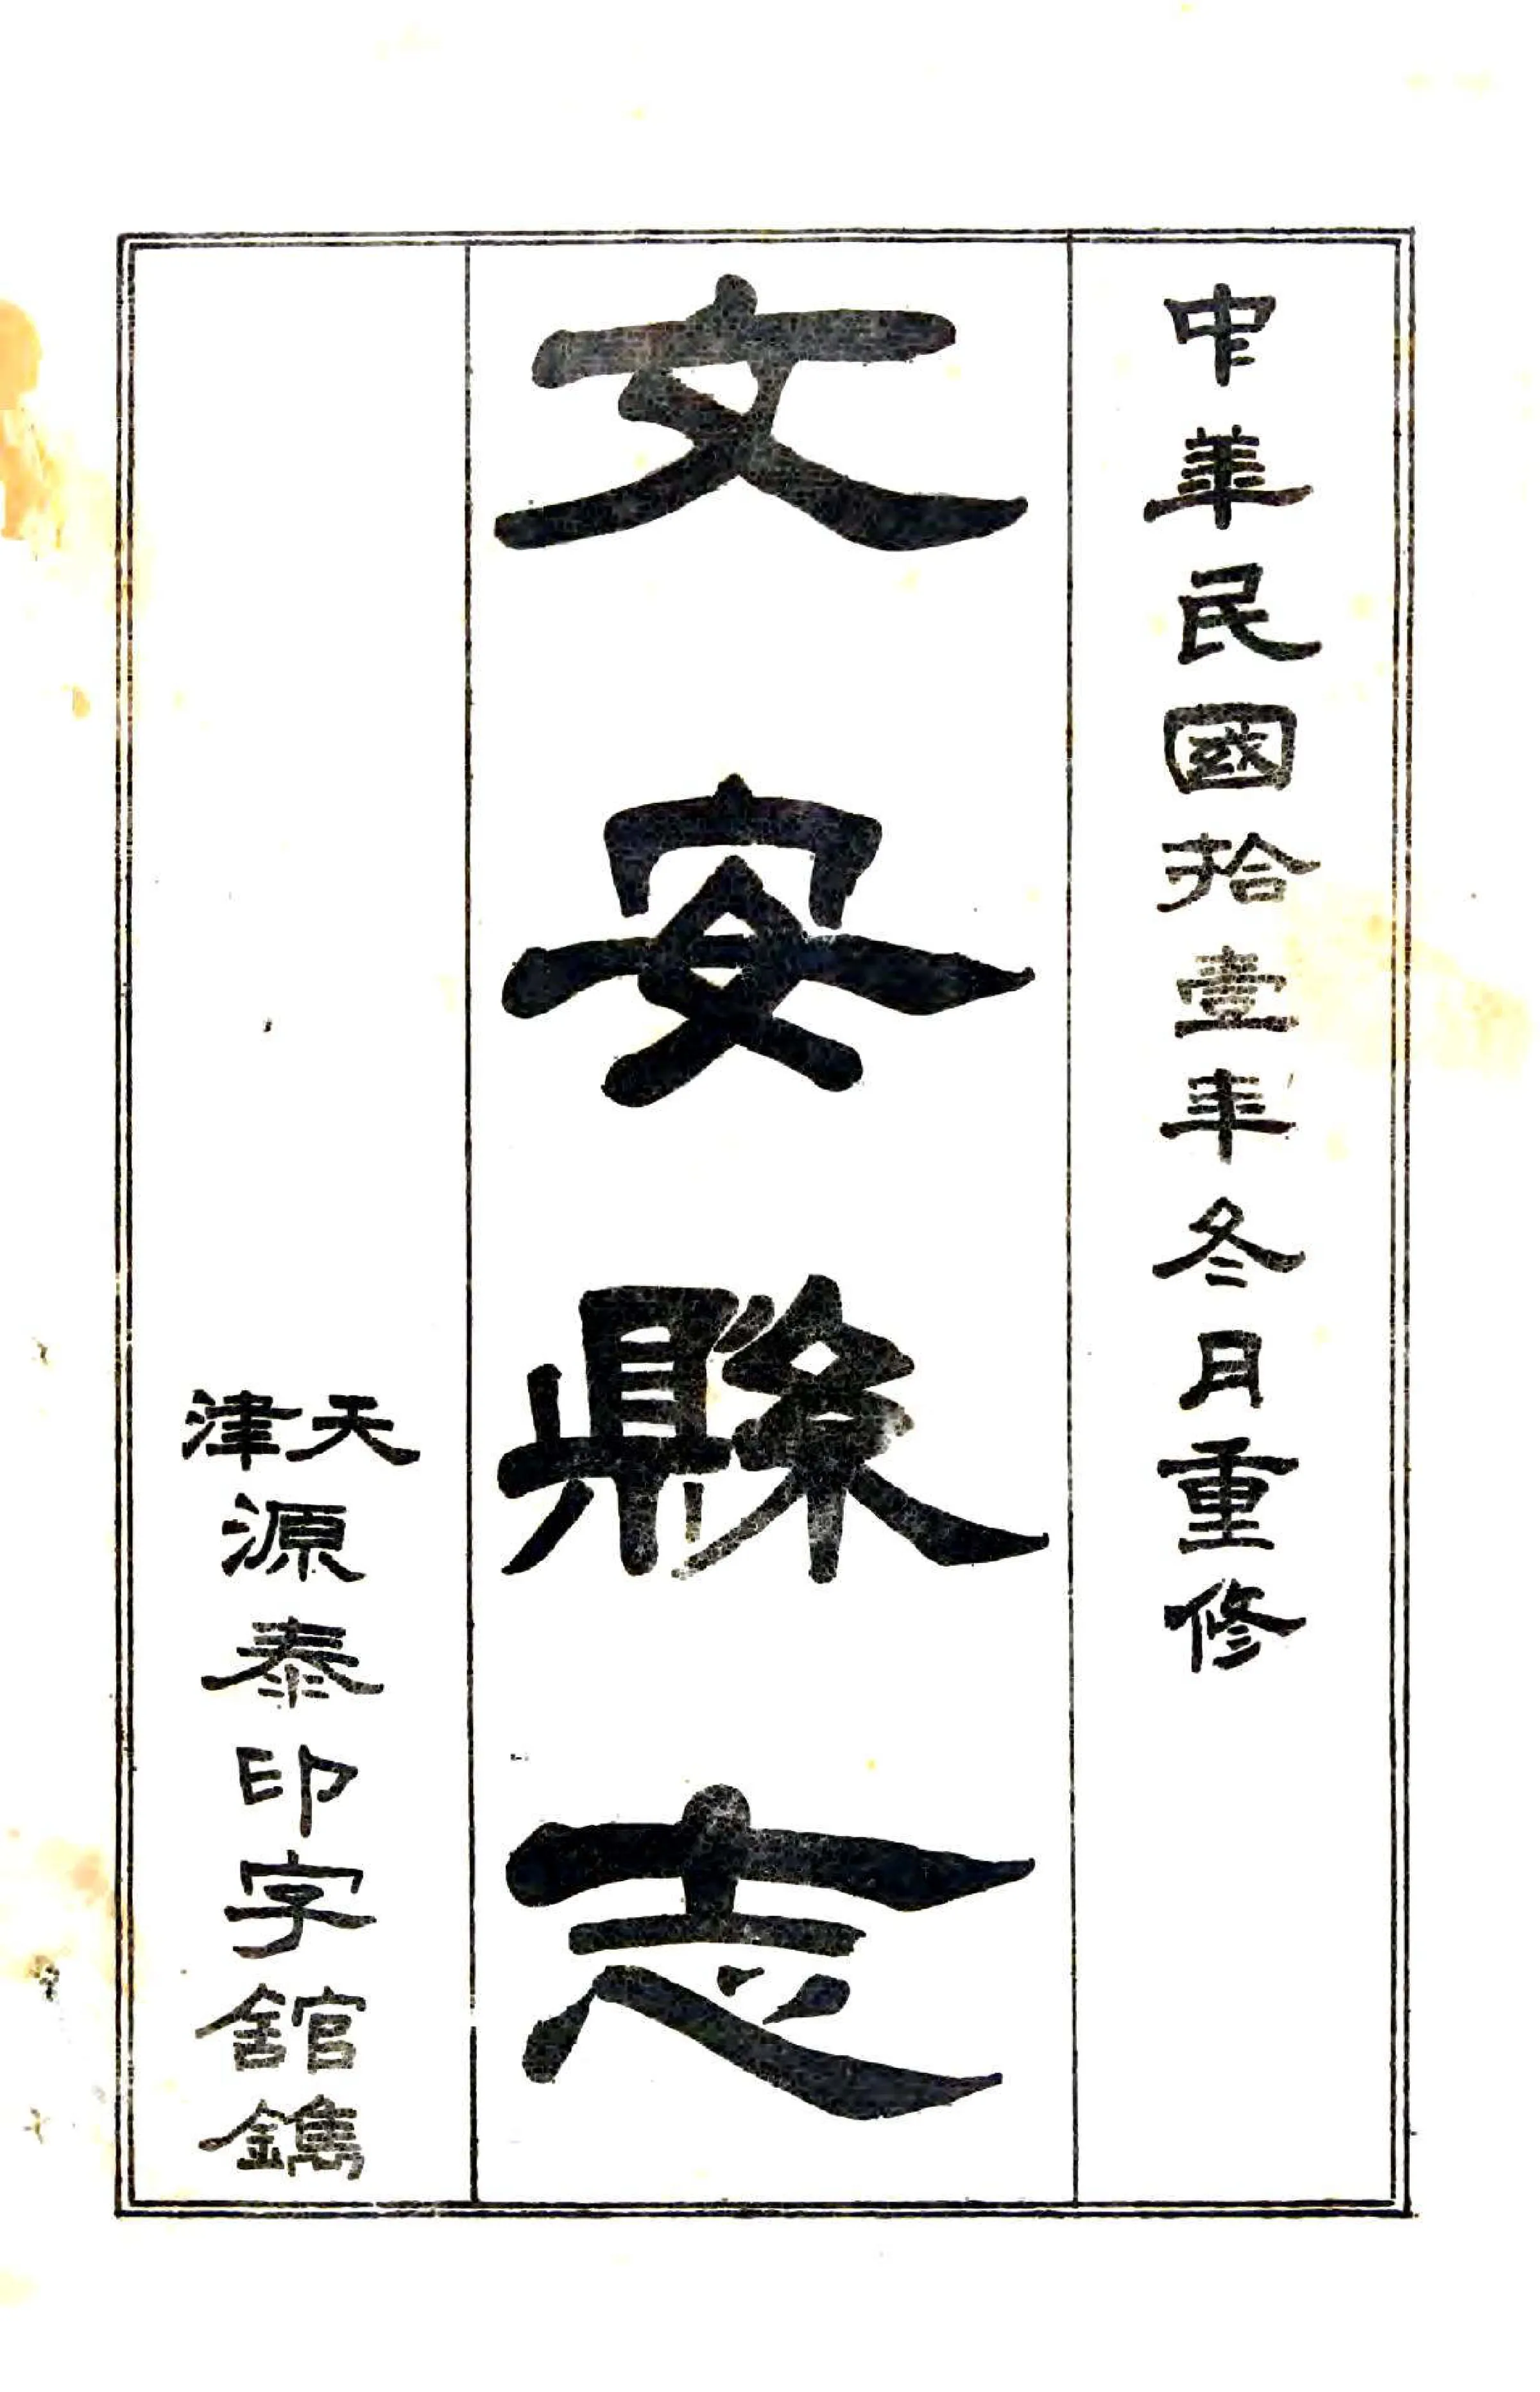 中華民國拾壹年冬月重修
文安縣志
天津源泰印字館鐫